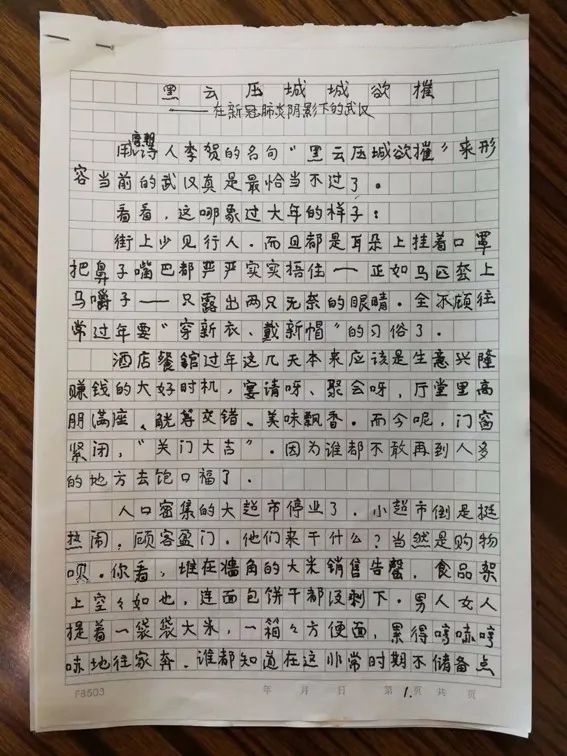 黑云压城城欲摧
——在新冠肺炎阴影下的武汉
用唐朝诗人李贺的名句“黑云压城城欲摧”来形
容当前的武汉真是最恰当不过了。
看看，这哪象过大年的样子：
街上少见行人。而且都是耳朵上挂着口罩
把鼻子嘴巴都严严实实捂住——正如马匹套上
马嚼子——只露出两只无奈的眼睛。全不顾往
常过年要“穿新衣、戴新帽”的习俗了。
酒店餐馆过年这几天本来应该是生意兴隆
赚钱的大好时机，宴请呀、聚会呀，厅堂里高
朋满座、觥筹交错、美味飘香。而今呢，门窗
紧闭，“关门大吉”。因为谁都不敢再到人多
的地方去饱口福了。
人口密集的大超市停业了。小超市倒是挺
热闹，顾客盈门。他们来干什么？当然是购物
呗。你看，堆在墙角的大米销售告罄，食品架
上空々如也，连面包饼干都没剩下。男人女人
提着一袋袋大米，一箱々方便面，累得哼哧哼
哧地往家奔。谁都知道在这非常时期不储备点
F8503 年 月 日 第1.页共 页